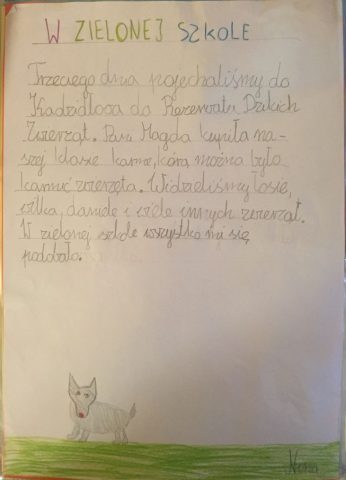 W ZIELONEJ SZKOLE
Trzeciego dnia pojechaliśmy do
Kadzidłowa do Rezerwatu Dzikich
Zwierząt. Pani Magda kupiła na-
szej klasie karmę, którą można było
karmić zwierzęta. Widzieliśmy łosie,
wilka, daniele i wiele innych zwierząt.
W zielonej szkole wszystko mi się
podobało.